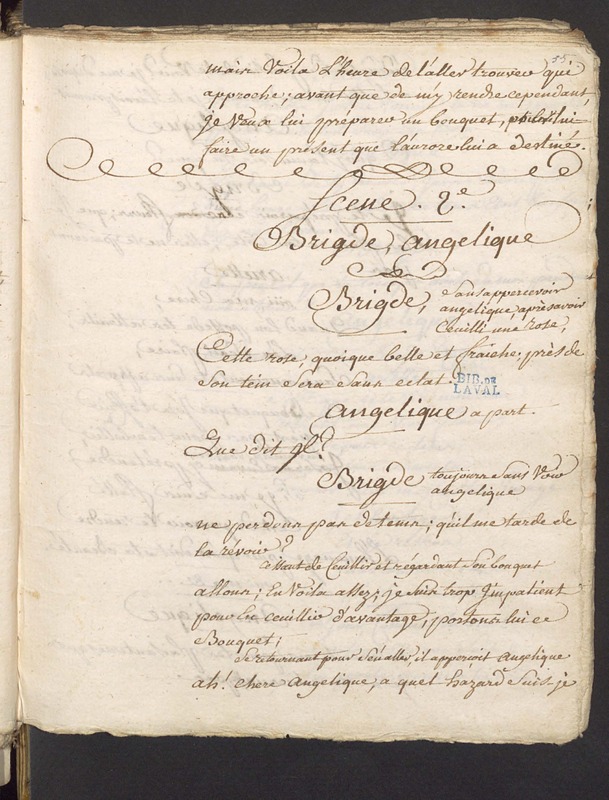 55
mais Voila L'heure de l'aller trouver qui
approche; avant que de m'y rendre cependant,
je Veux lui préparer un bouquet, lui
faire un présent que l'aurore lui a destiné.
Scene. 2.e
Brigde, angelique
Brigde, sans appercevoir
angelique après avoir
Ceuilli une rose,
Cette rose, quoique belle et fraiche, près de
son tein sera sans eclat.
BIB. DE
LAVAL
angelique a part.
Que dit il?
Brigde toujours sans Voir
angelique
ne perdons pas de tems; qu'il me tarde de
la révoir?
de Ceuillir et régardant son bouquet
allons; En Voila assez, je suis trop impatient
pour en ceuillir d'avantage, portons lui ce
Bouquet;
se retournant pour s'en aller il apperçoit angelique
ah! chere angelique, a quel hazard suis-je